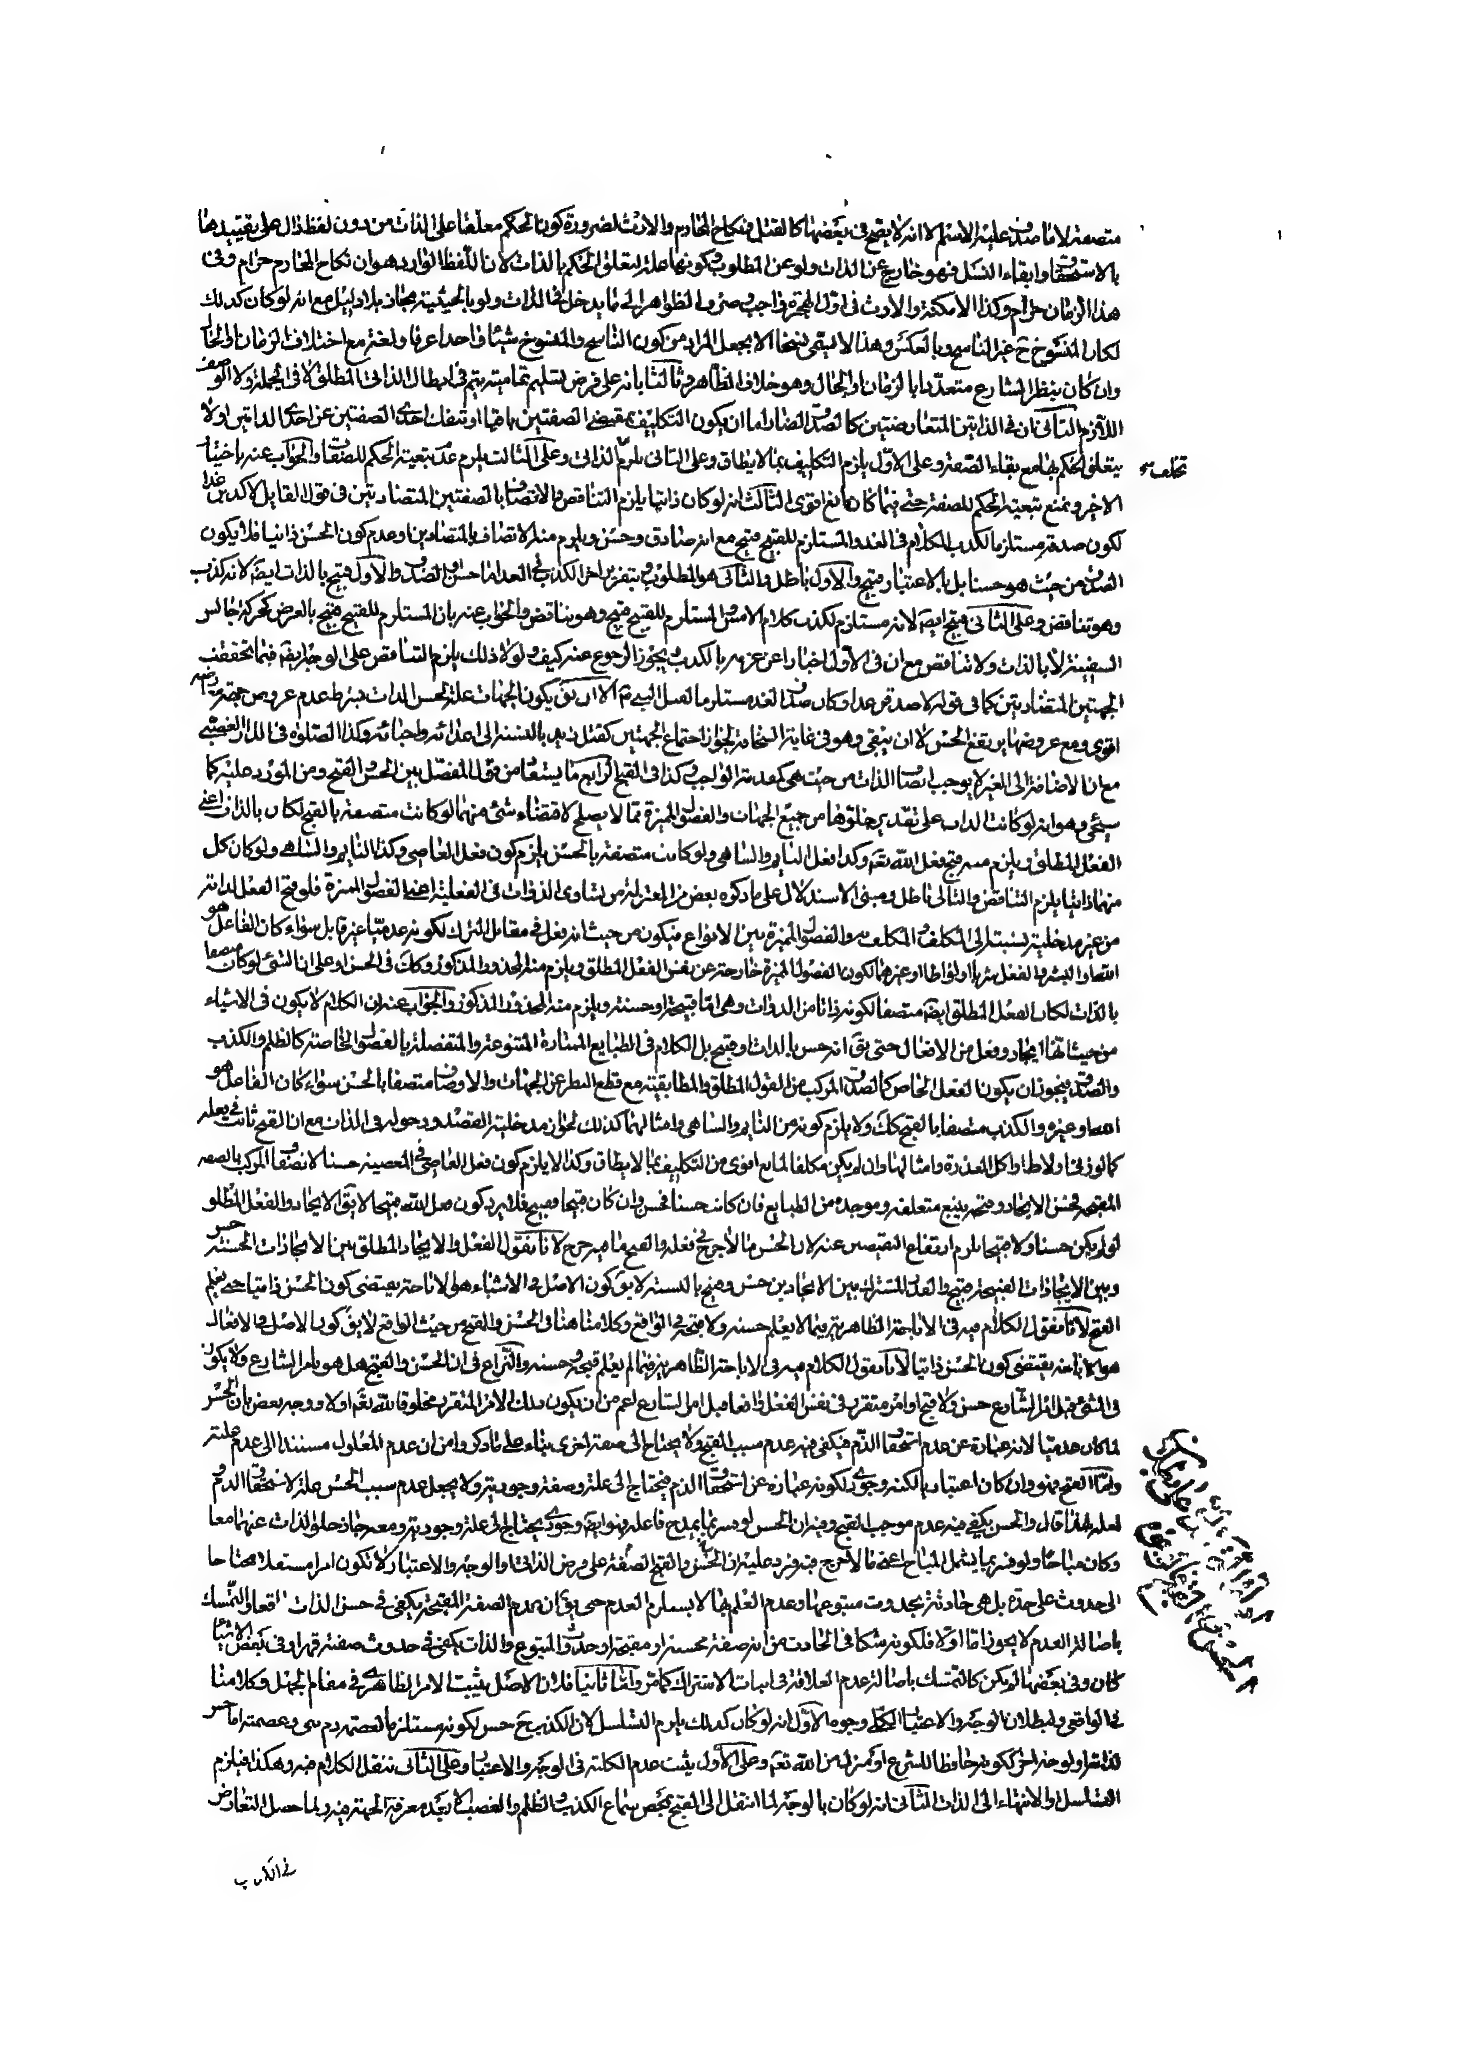 متصفة لا ما صدق عليه الاسم لا انه لا يصح في بعضها كالقتل ونكاح المحارم والارث لضرورة كون الحكم معلقا على الذات من دون لفظ دال على تقييدها
بالاستحقاق وابقاء النسل فهو خارج عن الذات ولو عن المطلوب وكونها علة لتعلق الحكم بالذات لان اللفظ الوارد هو ان نكاح المحارم حرام وفي
هذا الزمان حرام وكذا الامكنة والارث في اول الهجرة واجب وصرف الظواهر الى ما يدخل في الذات ولو بالحيثية مجاز بلا دليل مع انه لو كان كذلك
لكان المنسوخ ح غير الناسخ وبالعكس وهذا لا يسمى نسخا الا بجعل المراد من كون الناسخ والمنسوخ شيئا واحدا عرفا ولغة مع اختلاف الزمان او الحال
وان كان بنظر الشارع متعددا بالزمان او الحال وهو خلاف الظاهر وثالثا بانه على فرض تسليم تماميته يتم في ابطال الذاتي المطلق لا في الجملة ولا الوصف
اللازم الثاني ان في الذاتين المتعارضتين كالصدق الضار اما ان يكون التكليف بمقتضى الصفتين باقيا او تنفك احدى الصفتين عن احدى الذاتين او لا
يتعلق الحكم بها مع بقاء الصفة وعلى الاول يلزم التكليف بما لا يطاق وعلى الثاني يلزم الذاتي وعلى الثالث يلزم عدم تبعية الحكم للصفة والجواب عنه باختيار
تخلف
الاخير ونمنع تبعية الحكم للصفة حتى فيما كان مانع اقوى الثالث انه لو كان ذاتيا يلزم التناقض والاتصاف بالصفتين المتضادتين في قول القايل لاكذبن غدا
لكون صدقه مستلزما لكذب الكلام في الغد والمستلزم للقبيح قبيح مع انه صادق وحسن ويلزم منه الاتصاف بالمتضادين او عدم كون الحسن ذاتيا فلا يكون
الصدق من حيث هو حسنا بل بالاعتبار قبيح والاول باطل والثاني هو المطلوب وبتقرير اخر الكذب في الغد اما حسن او الصدق والاول قبيح بالذات ايضا لانه كذب
وهو تناقض وعلى الثاني قبيح ايضا لانه مستلزم لكذب كلام الامس والمستلزم للقبيح قبيح وهو تناقض والجواب عنه بان المستلزم للقبيح قبيح بالعرض كحركة جالس
السفينة لا بالذات ولا تناقض مع ان في الاول اخبارا عن عزمه بالكذب ويجوز الرجوع عنه كيف ولولا ذلك يلزم التناقض على الوجه ايضا فيما تحققت
الجهتين المتضادتين كما في قوله لاصدقن غدا وكان صدق الغد مستلزما لقتل النبي ثم الا ان يق يكون الجهات علة لحسن الذات بشرط عدم عروض جهة
اقوى ومع عروضها يرتفع الحسن لا ان يبقى وهو في غاية السخافة لجواز اجتماع الجهتين كقتل زيد بالنسبة الى اعدائه واحبائه وكذا الصلوة في الدار الغصبي
مع ان الاضافة الى الغير لا يوجب اتصاف الذات من حيث هي كمقدمة الواجب وكذا في القبح الرابع ما يستفاد من قول المفصل بين الحسن والقبح ومن المورد عليه كما
سيجئ وهو انه لو كانت الذات على تقدير خلوها من جميع الجهات والفصول المميزة مما لا يصلح لاقتضاء شئ منهما لو كانت متصفة بالقبح لكان بالذات اعني
الفعل المطلق ويلزم منه قبح فعل الله تعه وكذا فعل النايم والساهي ولو كانت متصفة بالحسن يلزم كون فعل العاصي وكذا النايم والساهي ولو كان كل
منهما ذاتيا يلزم التناقض والتالي باطل ومبنى الاستدلال على ما ذكره بعض من المعتزلة من تساوي الذوات في الفعلية اعني الفصول المميزة فلو قبح الفعل لذاته
من غير مدخلية لنسبته الى المكلف المكلف به والفصول المميزة بين الانواع فيكون من حيث انه فعل في مقابل الترك لكونه عدميا غير قابل سواء كان الفاعل هو
بالذات لكان الفعل المطلق ايضا متصفا لكونه ذاتا من الذوات وهي اما قبيحة او حسنة ويلزم منه المحذور المذكور والجواب عنه ان الكلام لا يكون في الاشياء
من حيث انها ايجاد وفعل من الافعال حتى يق انه حسن بالذات او قبيح بل الكلام في الطبايع الممتازة المتنوعة والمتفصلة بالفصول الخاصة كالظلم والكذب
والصدق فيجوز ان يكون الفعل الخاص كالصدق المركب من القول المطلق والمطابقية مع قطع النظر عن الجهات والاوصاف متصفا بالحسن سواء كان الفاعل هو
الله او غيره والكذب متصفا بالقبح كك ولا يلزم كونه من النايم والساهي وامثالهما كذلك لجواز مدخلية القصد ودخوله في الذات مع ان القبح ثابت في فعله
كما لو زنى او لاط او اكل العذرة وامثالها وان لم يكن مكلفا لمانع اقوى من التكليف بما لا يطاق وكذا لا يلزم كون فعل العاصي في المعصية حسنا لاتصاف المركب بالصفة
المقبحة وحسن الايجاد وقبحه يتبع متعلقه وموجده من الطبايع فان كانت حسنا فحسن وان كان قبيحا فقبيح فلا يرد كون فعل الله قبيحا لا يق الايجاد والفعل المطلق
لو لم يكن حسنا ولا قبيحا يلزم ارتفاع النقيضين عنه لان الحسن ما لا حرج في فعله والقبيح ما فيه حرج لانا نقول الفعل والايجاد المطلق بين الايجادات الحسنة حسن
وبين الايجادات القبيحة قبيح والفعل المشترك بين الايجادين حسن وقبيح بالنسبة لا يق كون الاصل في الاشياء هو الاباحة يقتضي كون الحسن ذاتيا حتى يعلم
القبح لانا نقول الكلام فيه في الاباحة الظاهرية فيما لا يعلم حسنه ولا قبحه في الواقع وكلامنا هنا في الحسن والقبح من حيث الواقع لا يق كون الاصل في الافعال
هو الاباحة يقتضي كون الحسن ذاتيا لانا نقول الكلام فيه في الاباحة الظاهرية فيما لم يعلم قبحه وحسنه والنزاع في ان الحسن والقبح هل هو بامر الشارع ولا يكون
في الشئ قبل امر الشارع حسن ولا قبح او امر متقرر في نفس الفعل واقعا قبل امر الشارع اعم من ان يكون ذلك الامر المتقرر مخلوقا لله تعه او لا ووجه بعض بان الحسن
لما كان عدميا لانه عبارة عن عدم استحقاق الذم فيكفي فيه عدم سبب القبح ولا يحتاج الى صفة اخرى بناء على ما ذكروا من ان عدم المعلول مستندا الى عدم علته
واما القبح فهو وان كان اعتباريا لكنه وجودي لكونه عبارة عن استحقاق الذم فيحتاج الى علة وصفة وجودية ولا يجعل عدم سبب الحسن علة لاستحقاق الذم
لعله لهذا قال والحسن يكفي فيه عدم موجب القبح وفيه ان الحسن لو فسر بما يمدح فاعله فهو ايضا وجودي يحتاج الى علة وجودية ومعه جاز خلو الذات عنهما معا
وكان مباحا ولو فسر بما يشمل المباح اعني ما لا حرج فيه فيرد عليه ان الحسن والقبح الصفة على فرض الذاتي او الوجه والاعتبار لا تكون امرا مستقلا محتاجا
الى حدوث على حدة بل هي حادثة بحدوث متبوعها وعدم العلم بها لا يستلزم العدم حتى يق ان عدم الصفة المقبحة يكفي في حسن الذات واقعا والتمسك
باصالة العدم لا يجوز اما اولا فلكونه شكا في الحادث من انه صفة محسنة او مقبحة او حدوث المتبوع والذات يكفي في حدوث صفته قهرا وفي بعض الاشياء
كان وفي بعضها لم يكن كالتمسك باصالة عدم العلاقة في اثبات الاشتراك كما مر واما ثانيا فلان الاصل يثبت الامر الظاهري في مقام الجهل وكلامنا
في الواقعي ولبطلان الوجه والاعتبار الكلي وجوه الاول انه لو كان كذلك يلزم التسلسل لان الكذب ح حسن لكونه مستلزما لعصمة دم نبي وعصمته اما حسن
لذاته او لوجه اخر ككونه حافظا للشرع او منزل من الله تعه وعلى الاول يثبت عدم الكلية في الوجه والاعتبار وعلى الثاني ننقل الكلام فيه وهكذا فيلزم
التسلسل والانتهاء الى الذات الثاني انه لو كان بالوجه لما انتقل الى القبح بمحض سماع الكذب والظلم والغصب الا بعد معرفة الجهة فيه ولما حصل التعارض
في الكذب